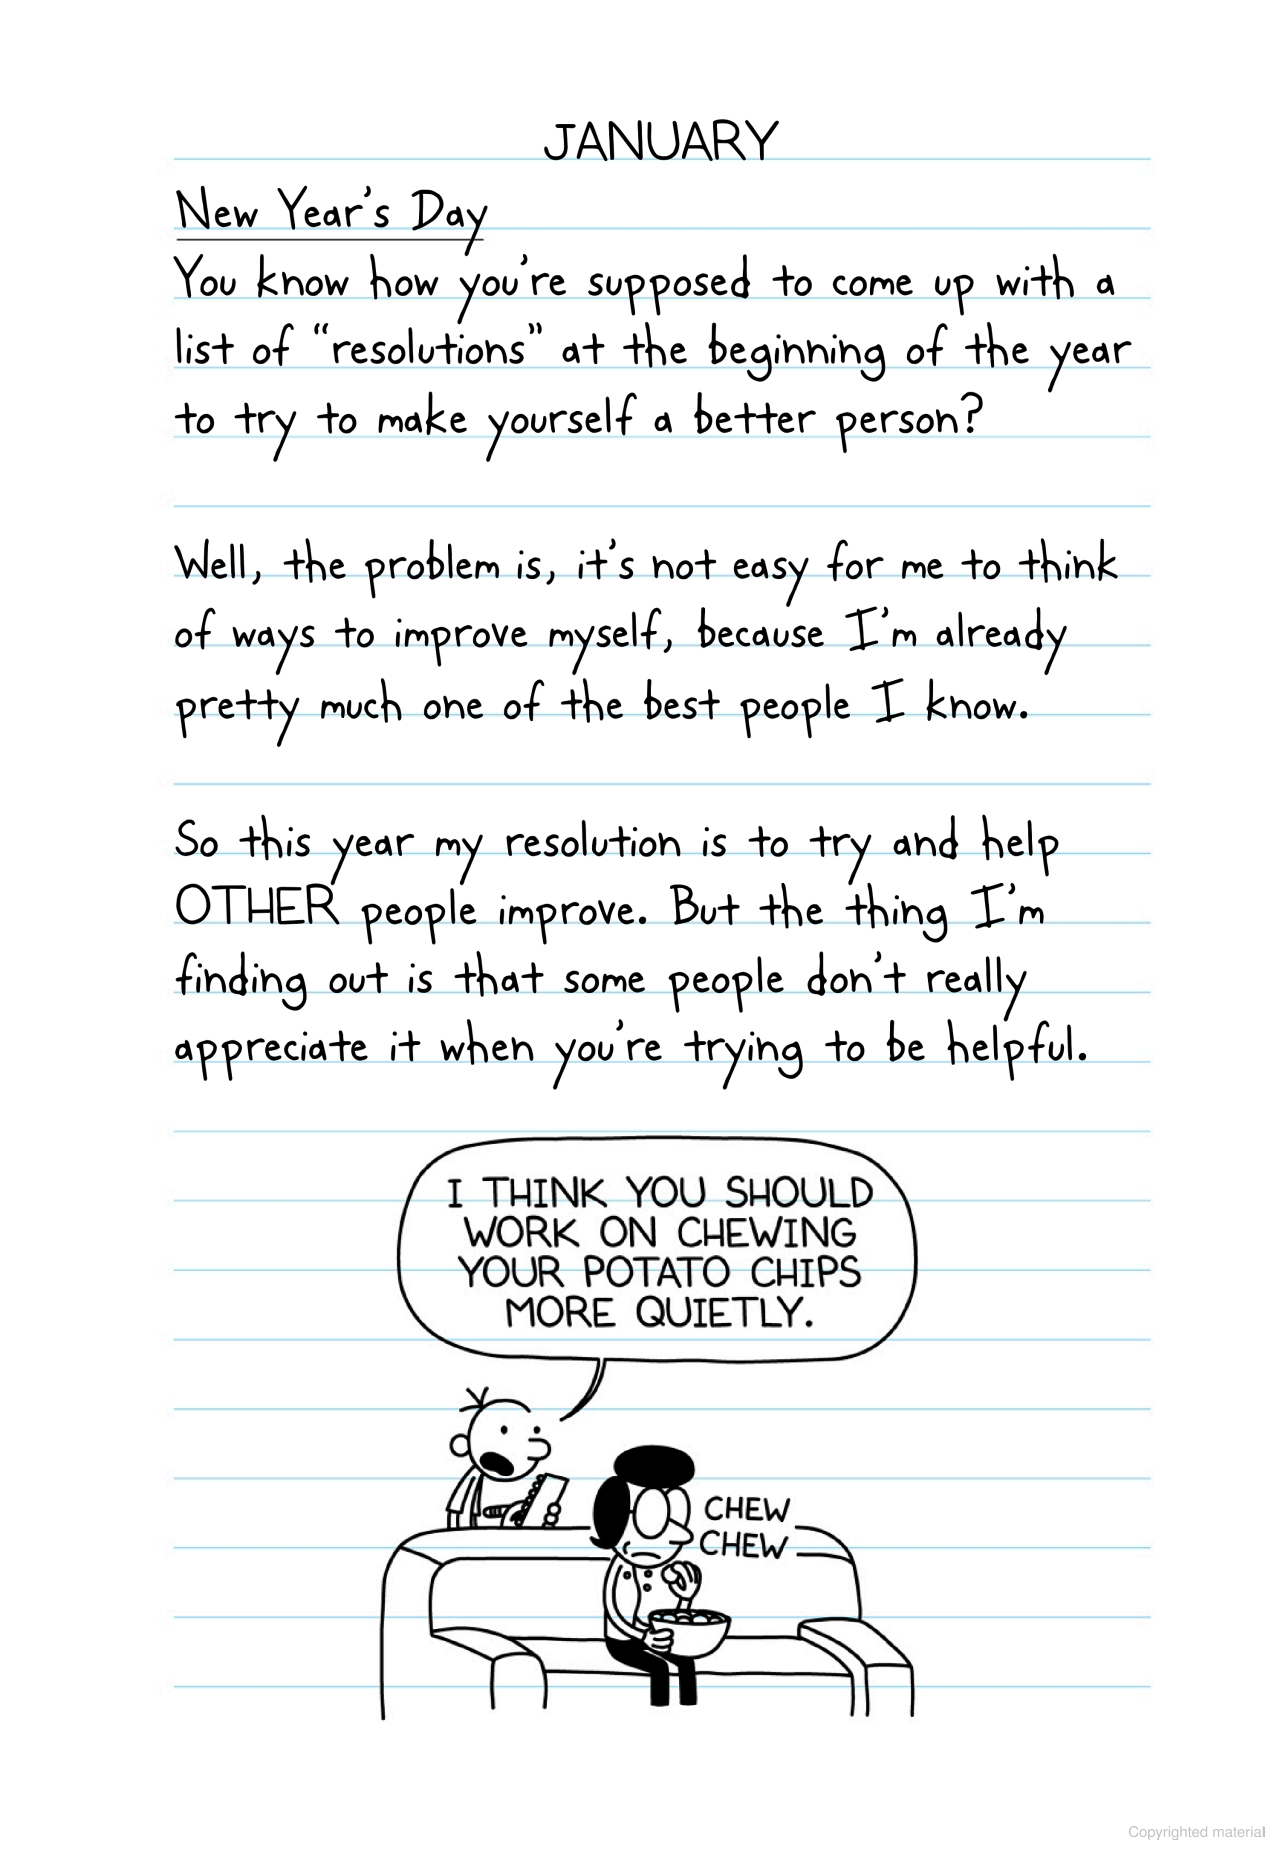 JANUARY
New Year's Day
You know how you're supposed to come up with a
list of “resolutions” at the beginning of the year
to try to make yourself a better person?
Well, the problem is, it's not easy for me to think
of ways to improve myself, because I'm already
pretty much one of the best people I know.
So this year my resolution is to try and help
OTHER people improve. But the thing I'm
finding out is that some people don't really
appreciate it when you're trying to be helpful.
I THINK YOU SHOULD
WORK ON CHEWING
YOUR POTATO CHIPS
MORE QUIETLY.
CHEW
CHEW
Copyrighted material